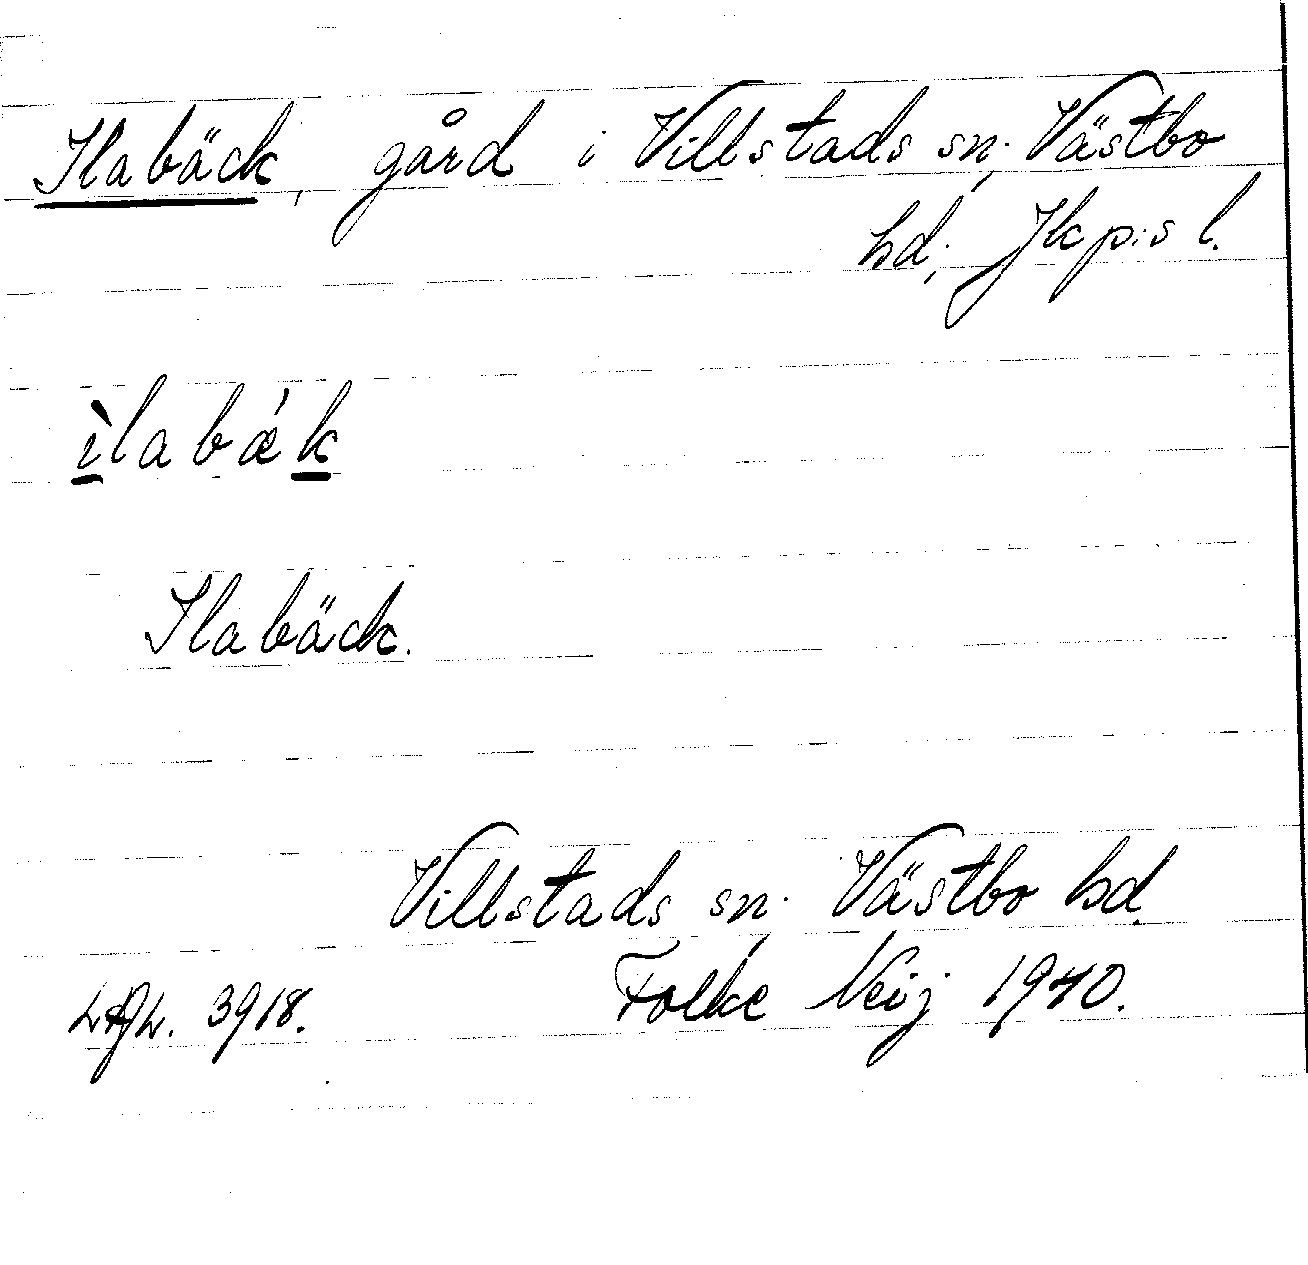 Ilabäck, gård i Villstads sn, Västbo
hd, Jkp:s l.
ìlabǽk
Ilabäck.
Villstads sn, Västbo hd.
Folke Neij 1940.
3918.